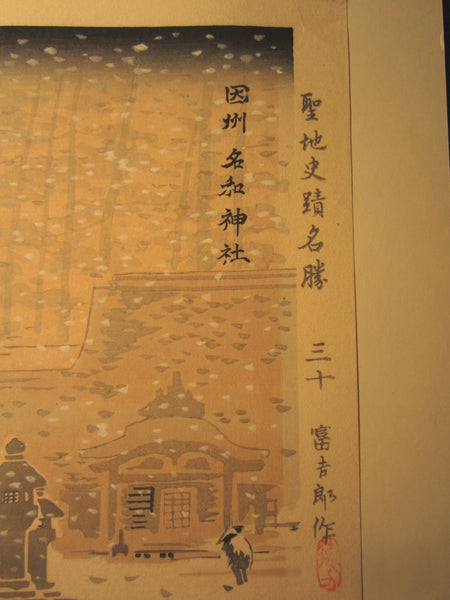 聖地史蹟名勝 三十 富吉郎作
因州 名和神社